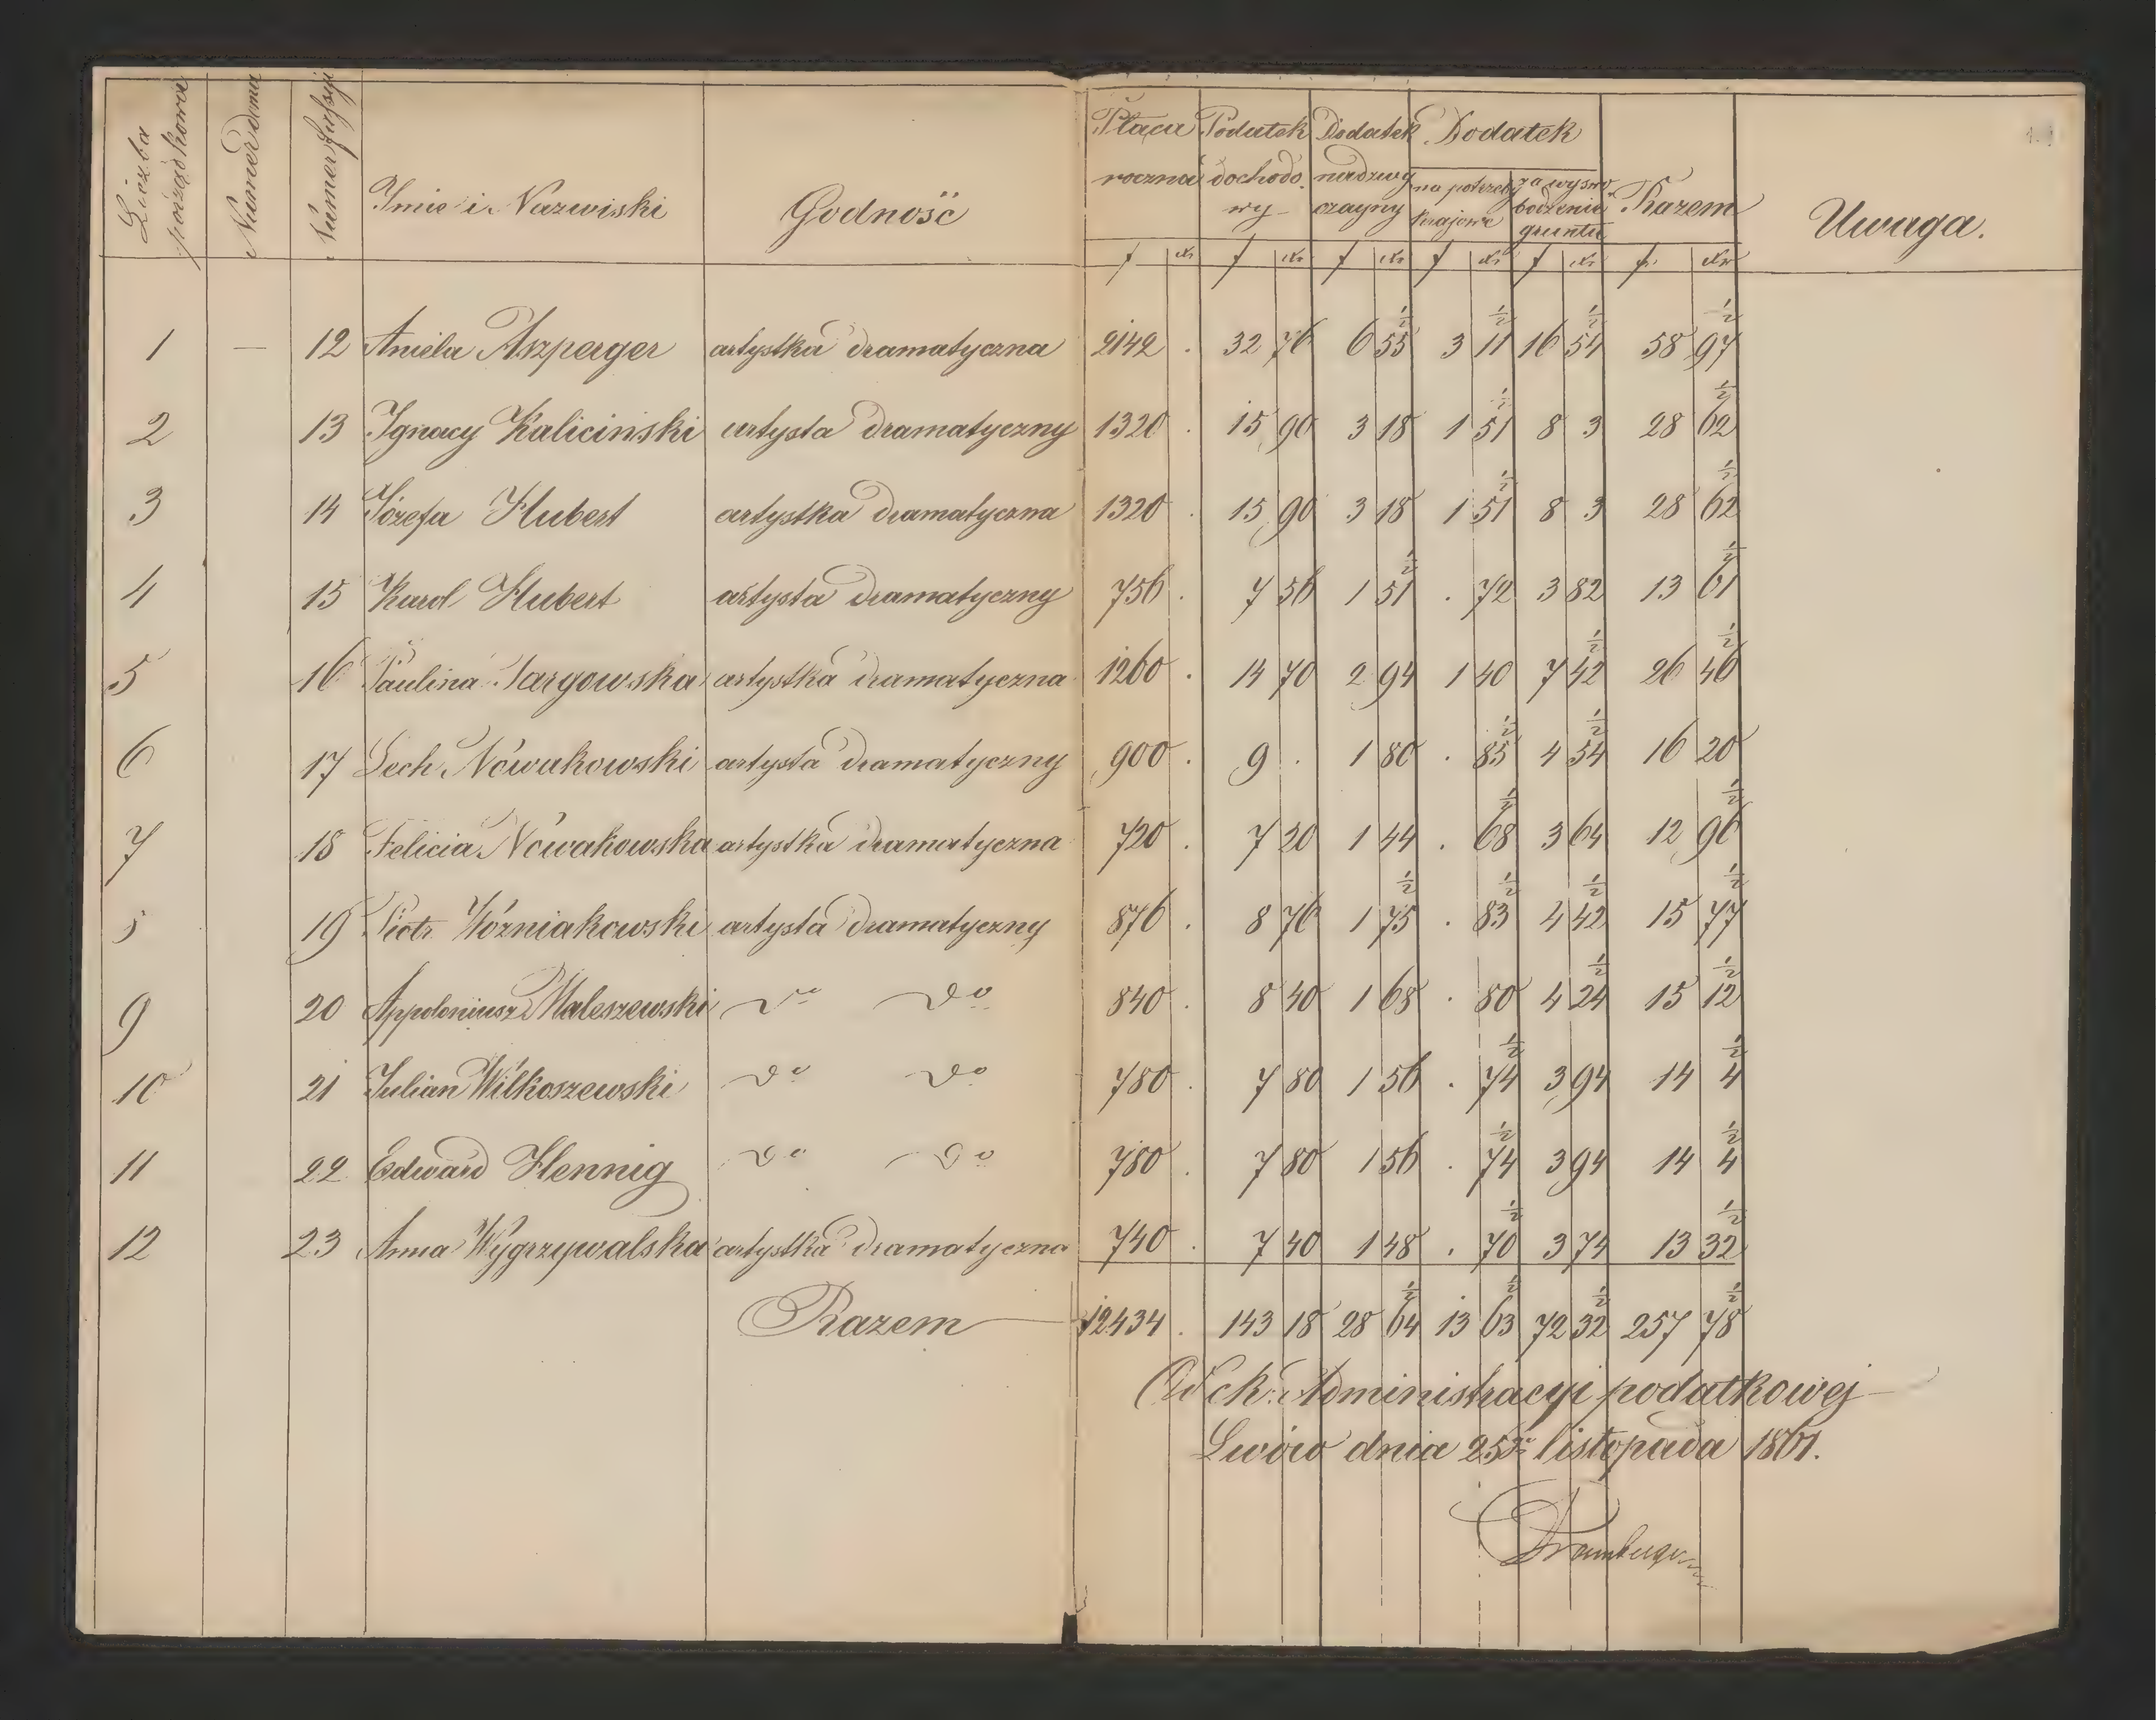 Liczba porządkowa
Numer domu
Numer fassyi
Imie i Nazwiski
Godność
Płaca roczna
Podatek dochodowy
Dodatek nadzwyczayny
Dodatek
na potrzeby krajowe
za wyswobodzenie gruntu
Razem
Uwaga.
f kr f kr f kr f kr f kr fr kr
1 — 12 Aniela Aszperger artystka dramatyczna 2142 . 32 76 6 55½ 3 11½ 16 54½ 58 97½
2 13 Ignacy Kaliciński artysta dramatyczny 1320 . 15 90 3 18 1 51½ 8 3 28 62½
3 14 Józefa Hubert artystka dramatyczna 1320 . 15 90 3 18 1 51½ 8 3 28 62½
4 15 Karol Hubert artysta dramatyczny 756 . 7 56 1 51½ . 72 3 82 13 61½
5 16 Paulina Targowska artystka dramatyczna 1260 . 14 70 2 94 1 40 7 42½ 26 46½
6 17 Lech Nowakowski artysta dramatyczny 900 . 9 . 1 80 . 85½ 4 54½ 16 20
7 18 Felicia Nowakowska artystka dramatyczna 720 . 7 20 1 44 . 68½ 3 64 12 96½
8 19 Piotr Woźniakowski artysta dramatyczny 876 . 8 76 1 75½ . 83½ 4 42½ 15 77½
9 20 Appoloniusz Maleszewski do do 840 . 8 40 1 68 . 80 4 24½ 15 12½
10 21 Julian Wilkoszewski do do 780 . 7 80 1 56 . 74½ 3 94 14 4½
11 22 Edward Hennig do do 780 . 7 80 1 56 . 74½ 3 94 14 4½
12 23 Anna Wygrzywalska artystka dramatyczna 740 . 7 40 1 48 . 70½ 3 74 13 32½
Razem 12434 . 143 18 28 64½ 13 63½ 72 32½ 257 78½
Od ck. Administracyi podatkowej
Lwów dnia 25go listopada 1861.